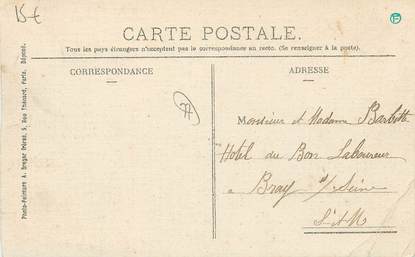 15€
CARTE POSTALE.
Tous les pays étrangers n'acceptent pas la correspondance au recto. (Se renseigner à la poste).
CORRESPONDANCE
ADRESSE
77
Monsieur et Madame
Hotel du Bon Laboureur
a Bray s/Seine
S. et M
Photo-Peinture A. Breger Frères, 9, Rue Thénard, Paris. Déposé.